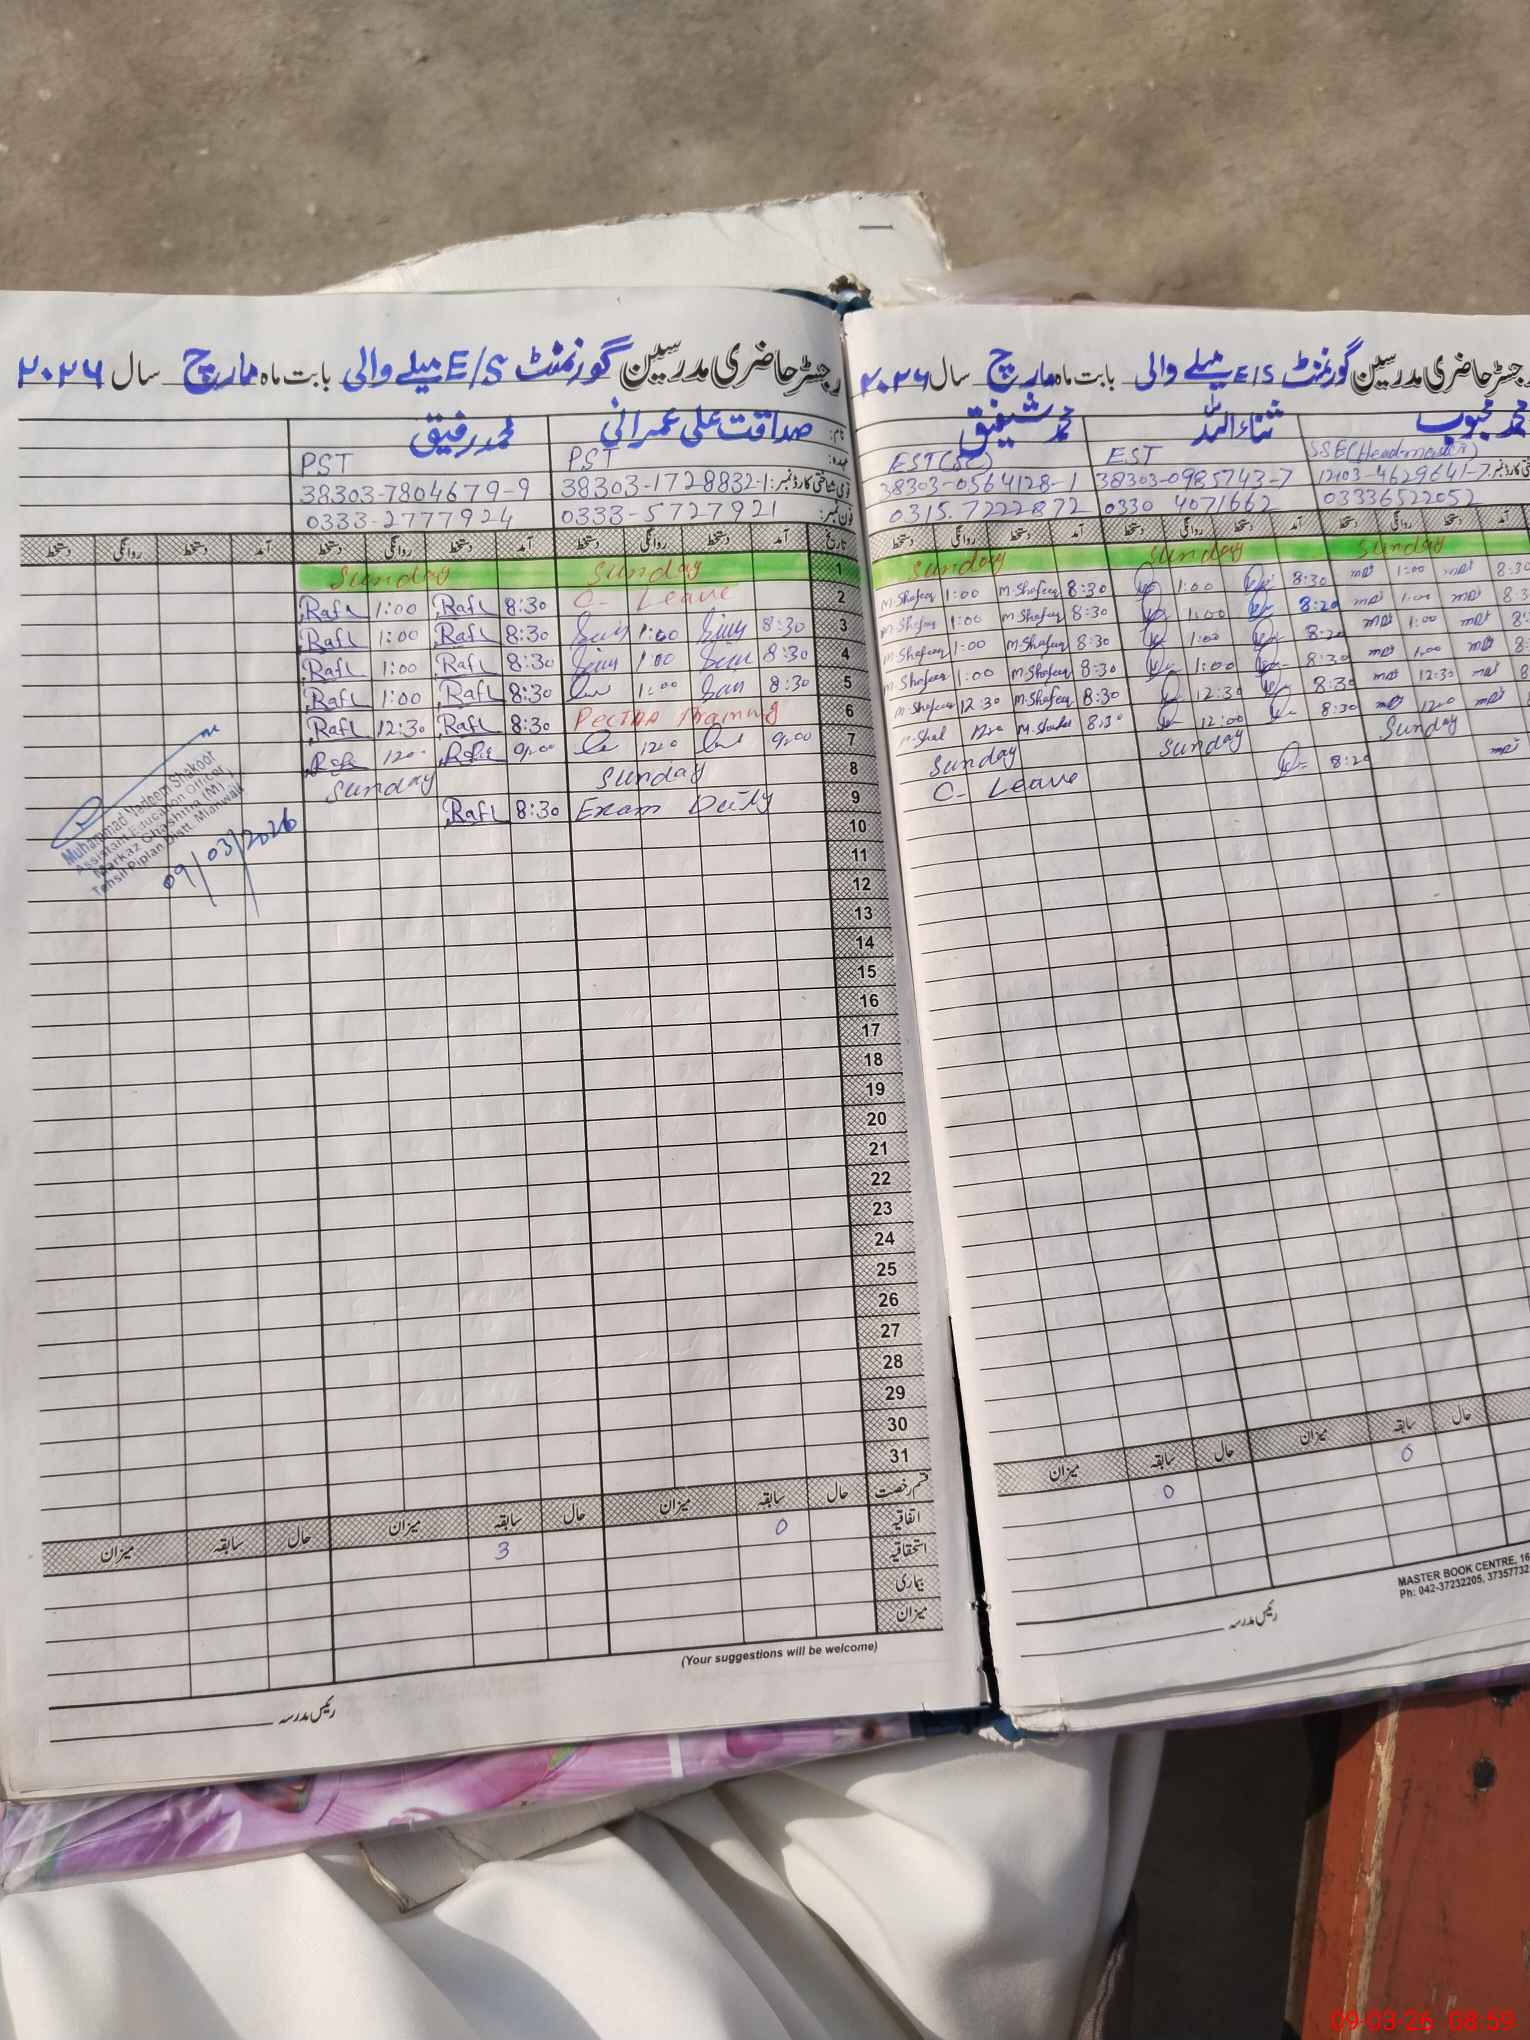 رجسٹر حاضری مدرسین گورنمنٹ E/S میلے والی بابت ماہ مارچ سال ۲۰۲۶
نام: صداقت علی عمرانی محمد رفیق
عہدہ: PST PST
قومی شناختی کارڈ نمبر: 38303-1728832-1 38303-7804679-9
فون نمبر: 0333-5727921 0333-2777924
تاریخ آمد دستخط روانگی دستخط آمد دستخط روانگی دستخط آمد دستخط روانگی دستخط
1 Sunday Sunday
2 C- Leave 8:30 Rafi 1:00 Rafi
3 8:30 1:00 8:30 Rafi 1:00 Rafi
4 8:30 1:00 8:30 Rafi 1:00 Rafi
5 8:30 1:00 8:30 Rafi 1:00 Rafi
6 PECTAA Training 8:30 Rafi 12:30 Rafi
7 9:00 1200 9:00 1200
8 Sunday Sunday
9 Exam Duty 8:30 Rafi
10
11
12
13
14
15
16
17
18
19
20
21
22
23
24
25
26
27
28
29
30
31
Muhammad Nadeem Shakoor
Assistant Education Officer
Markaz Chashma (M)
Tehsil Piplan Distt. Mianwali
09/03/2026
قسم رخصت حال سابقہ میزان حال سابقہ میزان حال سابقہ میزان
اتفاقیہ 0 3
استحقاقیہ
بیماری
میزان
(Your suggestions will be welcome)
رئیس مدرسہ
رجسٹر حاضری مدرسین گورنمنٹ E/S میلے والی بابت ماہ مارچ سال ۲۰۲۶
محمد محبوب ثناء اللہ محمد شفیق
SSE(Headmaster) EST EST(SC)
قومی شناختی کارڈ نمبر 12103-4629641-7 38303-0985743-7 38303-0564128-1
03336522052 0330 4071662 0315-7222872
آمد دستخط روانگی دستخط آمد دستخط روانگی دستخط آمد دستخط روانگی دستخط
Sunday Sunday Sunday
8:30 1:00 8:30 1:00 8:30 M.Shafeeq 1:00 M.Shafeeq
1:00 8:20 1:00 8:30 M.Shafeeq 1:00 M.Shafeeq
1:00 8:20 1:00 8:30 M.Shafeeq 1:00 M.Shafeeq
1:00 8:30 1:00 8:30 M.Shafeeq 1:00 M.Shafeeq
12:30 8:30 12:30 8:30 M.Shafeeq 12:30 M.Shafeeq
1200 8:30 12:00 8:30
Sunday Sunday Sunday
8:20 C- Leave
حال سابقہ میزان حال سابقہ میزان
0 0
MASTER BOOK CENTRE, 16
Ph: 042-37232205, 37357732
رئیس مدرسہ
09-03-26 08:59